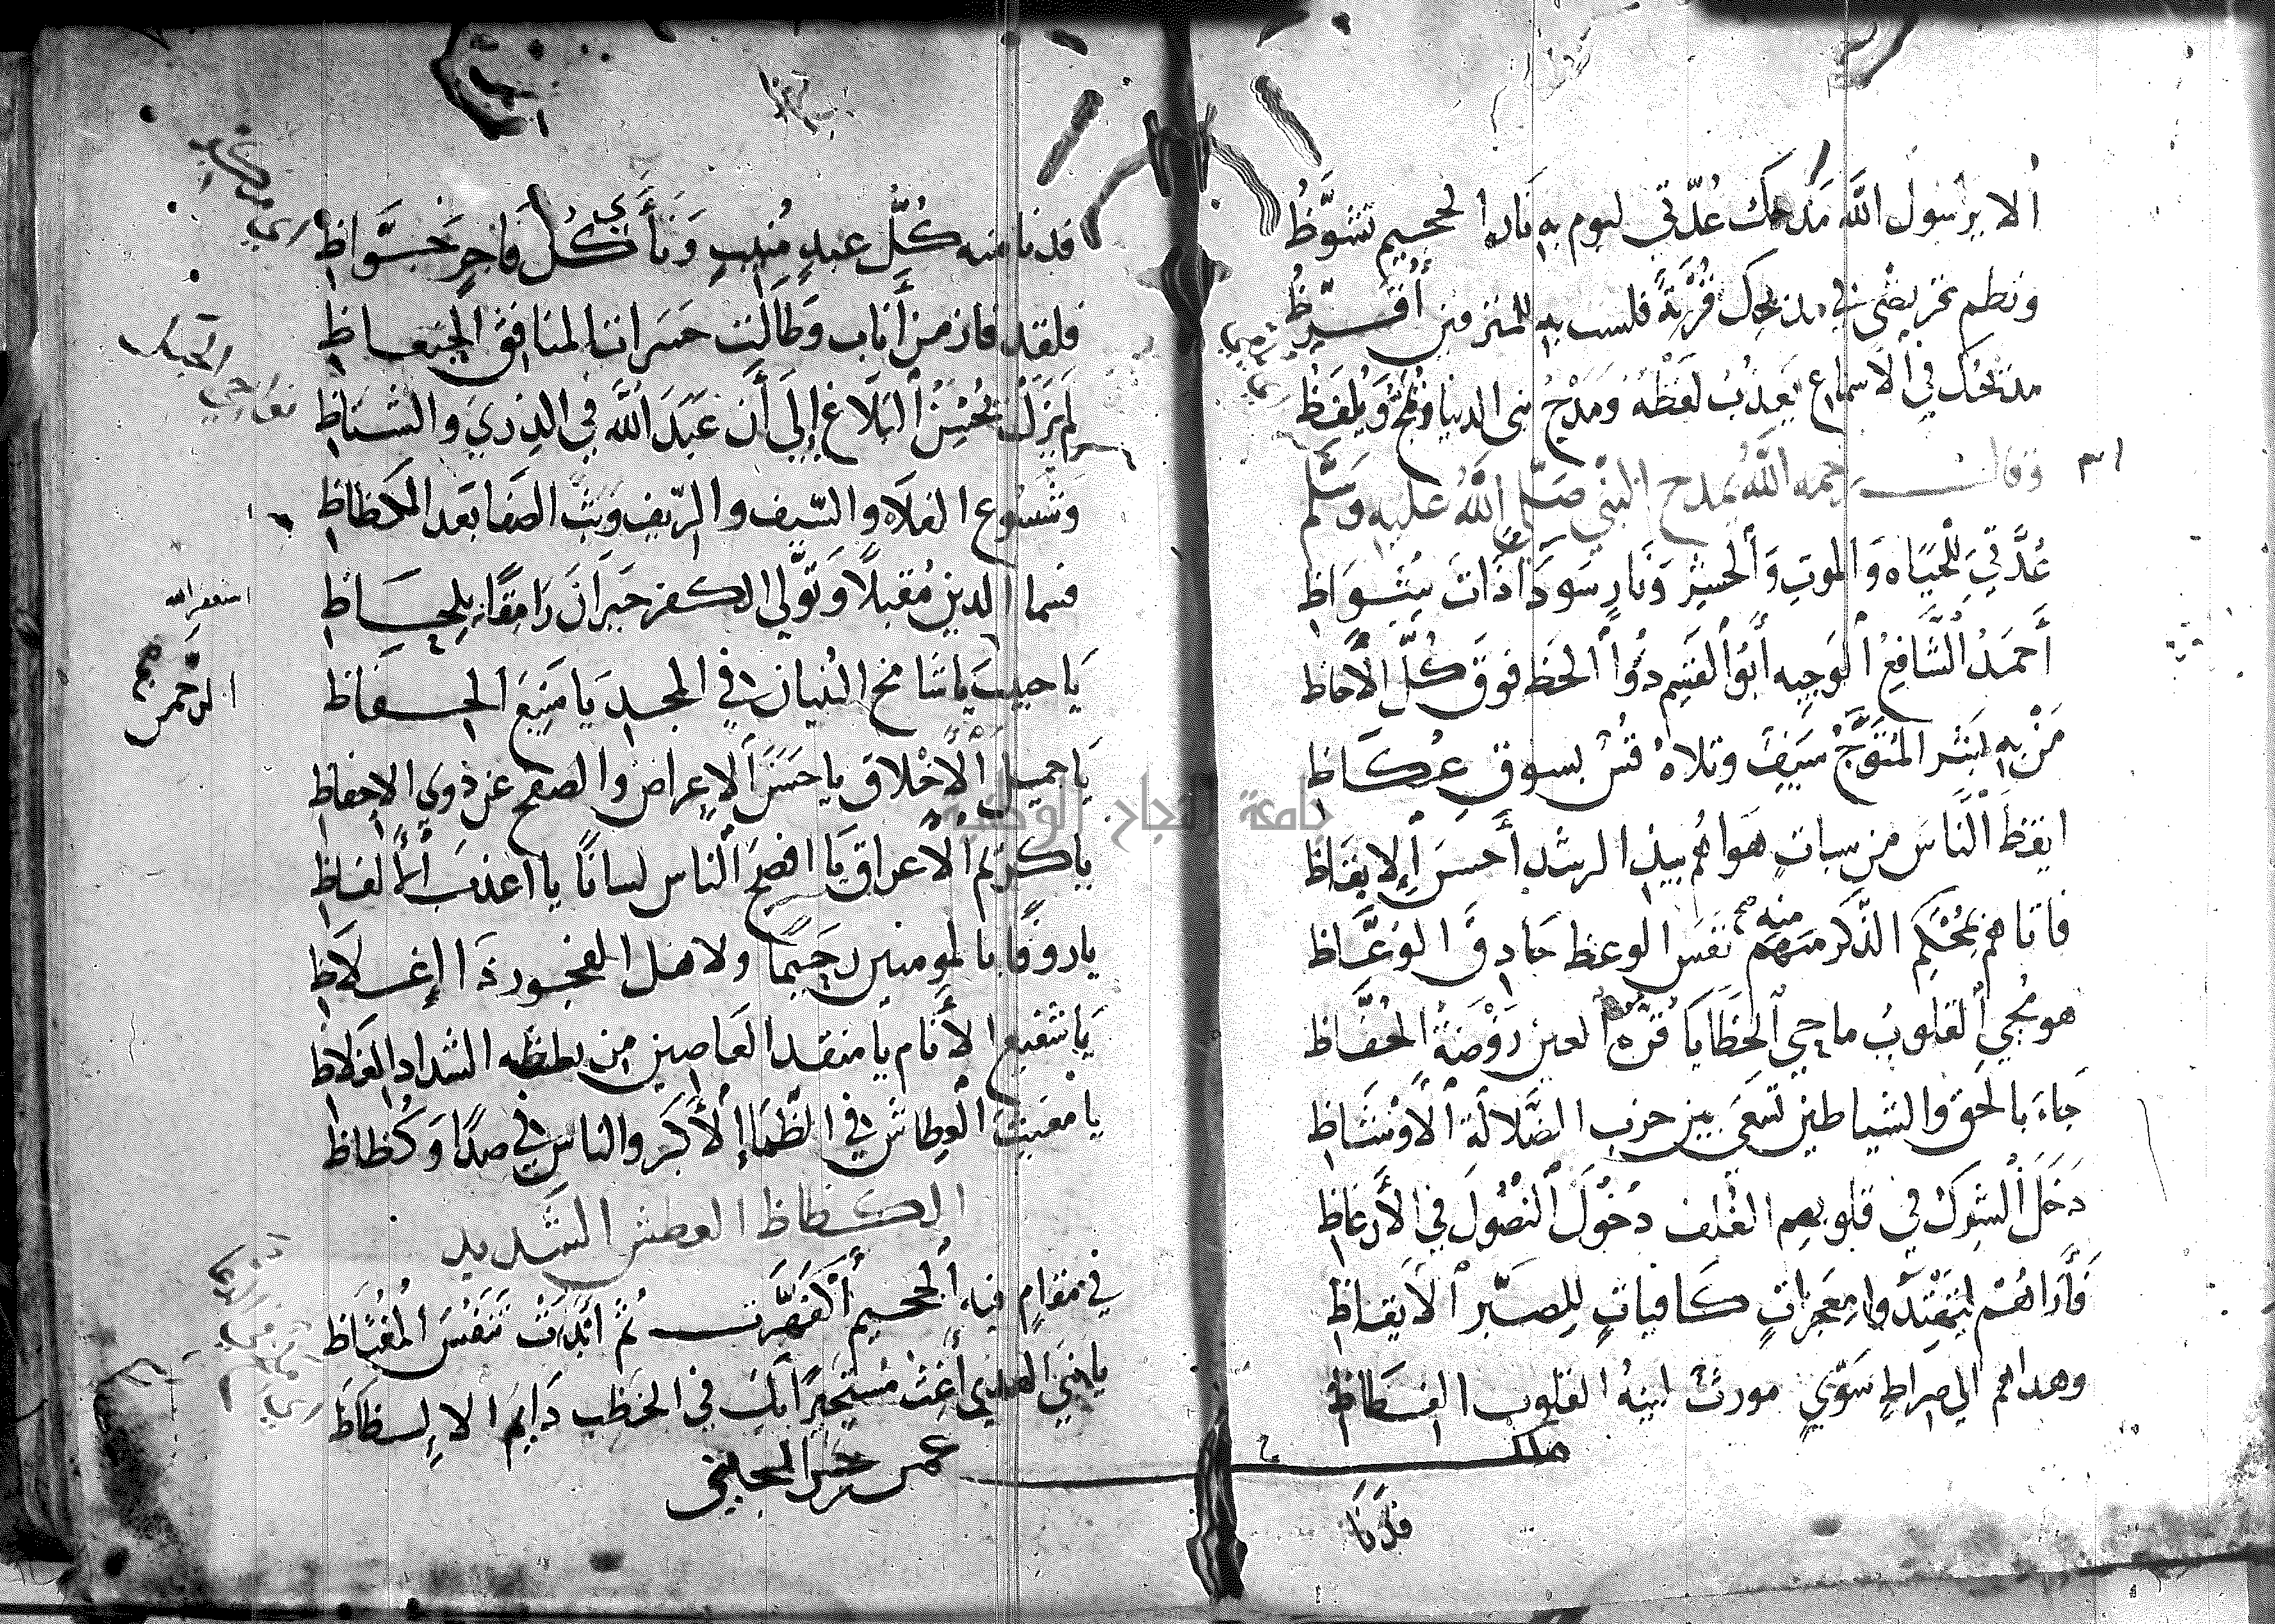 ألا يرسول الله مدحك عدتي ليوم به نار الجحيم تشوظ
ونظم تقريضي في مديحك قربة فلست به للمنزفين أقرظ
مديحك في الأسماع يعذب لفظه ومدح بني الدنيا يمج ويلفظ
٣١ وقال رحمه الله يمدح النبي صلى الله عليه وسلم
عدتي للحياه والموت والحشر ونار سودا ذات شواظ
أحمد الشافع الوجيه أبو القسم ذوا الحظ فوق كل الأحاظ
من به بشر المتوج سيف وتلاه قس بسوق عكاظ
ايقظ الناس من سبات هواهم بيد الرشد أحسن الإيقاظ
فاتاهم بمحكم الذكر منهم منه صح نفس الوعظ حاذق الوعاظ
هو محيي القلوب ماحي الخطايا قرة العين روضة الحفاظ
جاء بالحق والشياطين تسعى بين حزب الضلالة الأوشاظ
دخل الشرك في قلوبهم الغلف دخول النصول في الأرعاظ
فأراهم ليهتدوا معجزات كافيات للصبر الأيقاظ
وهداهم الي صراط سوي مورث لينه القلوب الفظاظ
ملك
فدنا
فدنا منه كل عبد منيب ونأى كل فاجر جواظ
فلقد فاز من أناب وطالت حسراتا لمنافق الجنعاظ
لم يزل يحسن البلاغ إلى أن عبد الله في الذرى والشناظ
وشسوع الفلاه والسيف والريف وبث الصفا بعد المكظاظ
فسما الدين مقبلا وتولى الكفر حيران رامقا بلحاظ
يا حبيب يا شامخ البنيان في المجد يا منيع الحفاظ
يا جميل الأخلاق يا حسن الإعراض والصفح عن ذوي الاحفاظ
يا كريم الأعراق يا افصح الناس لسانا يا اعذب الألفاظ
يا روفا بالمومنين رحيما ولاهل الفجور ذا إغلاظ
يا شفيع الأنام يا منقذ العاصين من لظظه الشداد الغلاظ
يا مغيث العطاش في الظما الأكبر والناس في صدا وكظاظ
الكظاظ العطش الشديد
في مقام فيه الجحيم اكفهرت ثم ابدت تنفس المغتاظ
يا نبي الهدى أغث مستجيرا بك في الخطب دايم الإلظاظ
عمر
استغفر الله
الرحمن